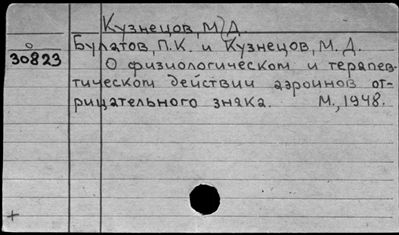 Кузнецов, М. Д.
Булатов, П.К. и Кузнецов, М. Д.
30823
О физиологическом и терапев-
тическом действии аэроинов от-
рицательного знака. М., 1948.